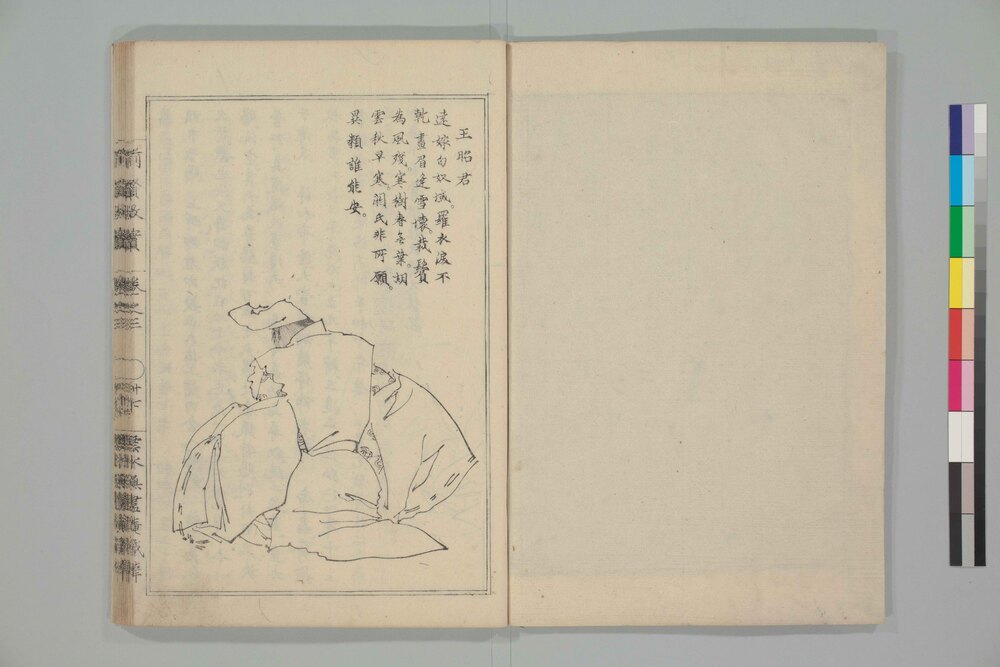 王昭君
遠嫁匈奴域。羅衣涙不
乾畫眉逢雪壞。裁鬢
為風殘。寒樹春無葉。胡
雲秋早寒。閼氏非所願。
異類誰能安。